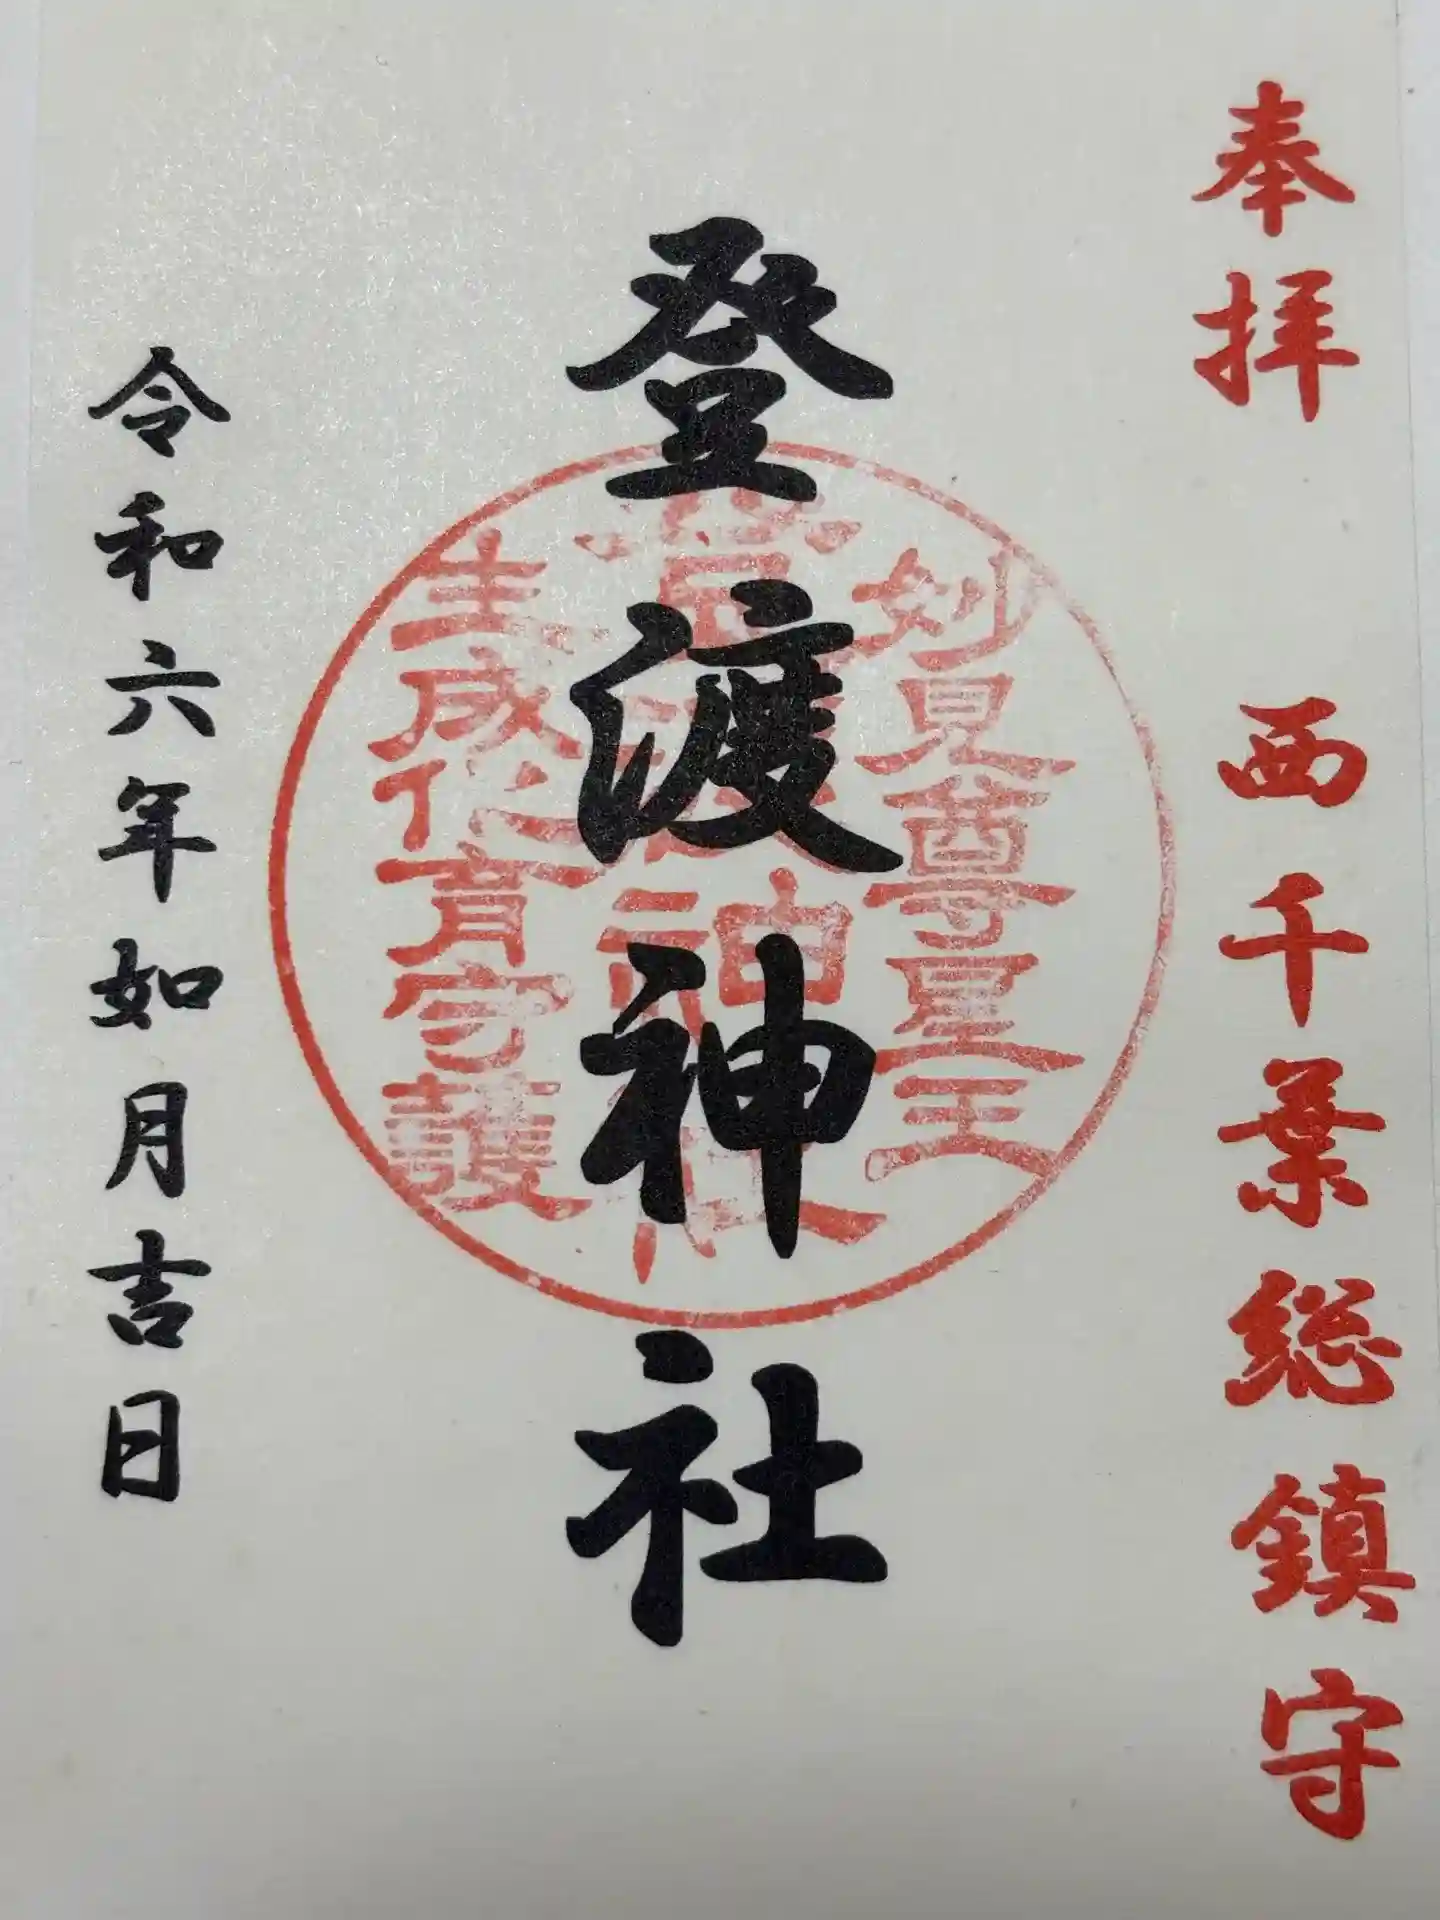 奉拝 西千葉総鎮守
登渡神社
妙見尊星王
登渡神社
生成化育守護
令和六年如月吉日